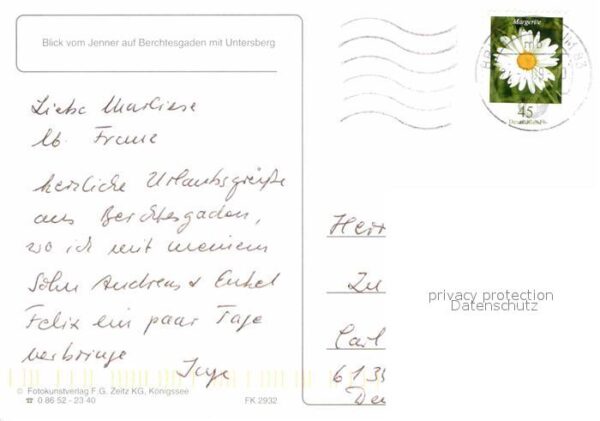 Blick vom Jenner auf Berchtesgaden mit Untersberg
Margerite
45
Deutschland
Liebe Marliese
lb. Franz
herzliche Urlaubsgrüße
aus Berchtesgaden,
wo ich mit meinem
Sohn Andreas + Enkel
Felix ein paar Tage
verbringe
Inge
Herr
Zu
Carl
6135
privacy protection
Datenschutz
© Fotokunstverlag F.G. Zeitz KG, Königssee
☎ 0 86 52 - 23 40
FK 2932